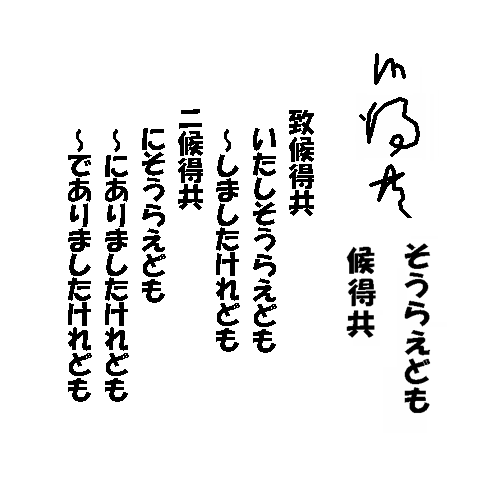 候得共
そうらえども
候得共
致候得共
いたしそうらえども
～しましたけれども
二候得共
にそうらえども
～にありましたけれども
～でありましたけれども